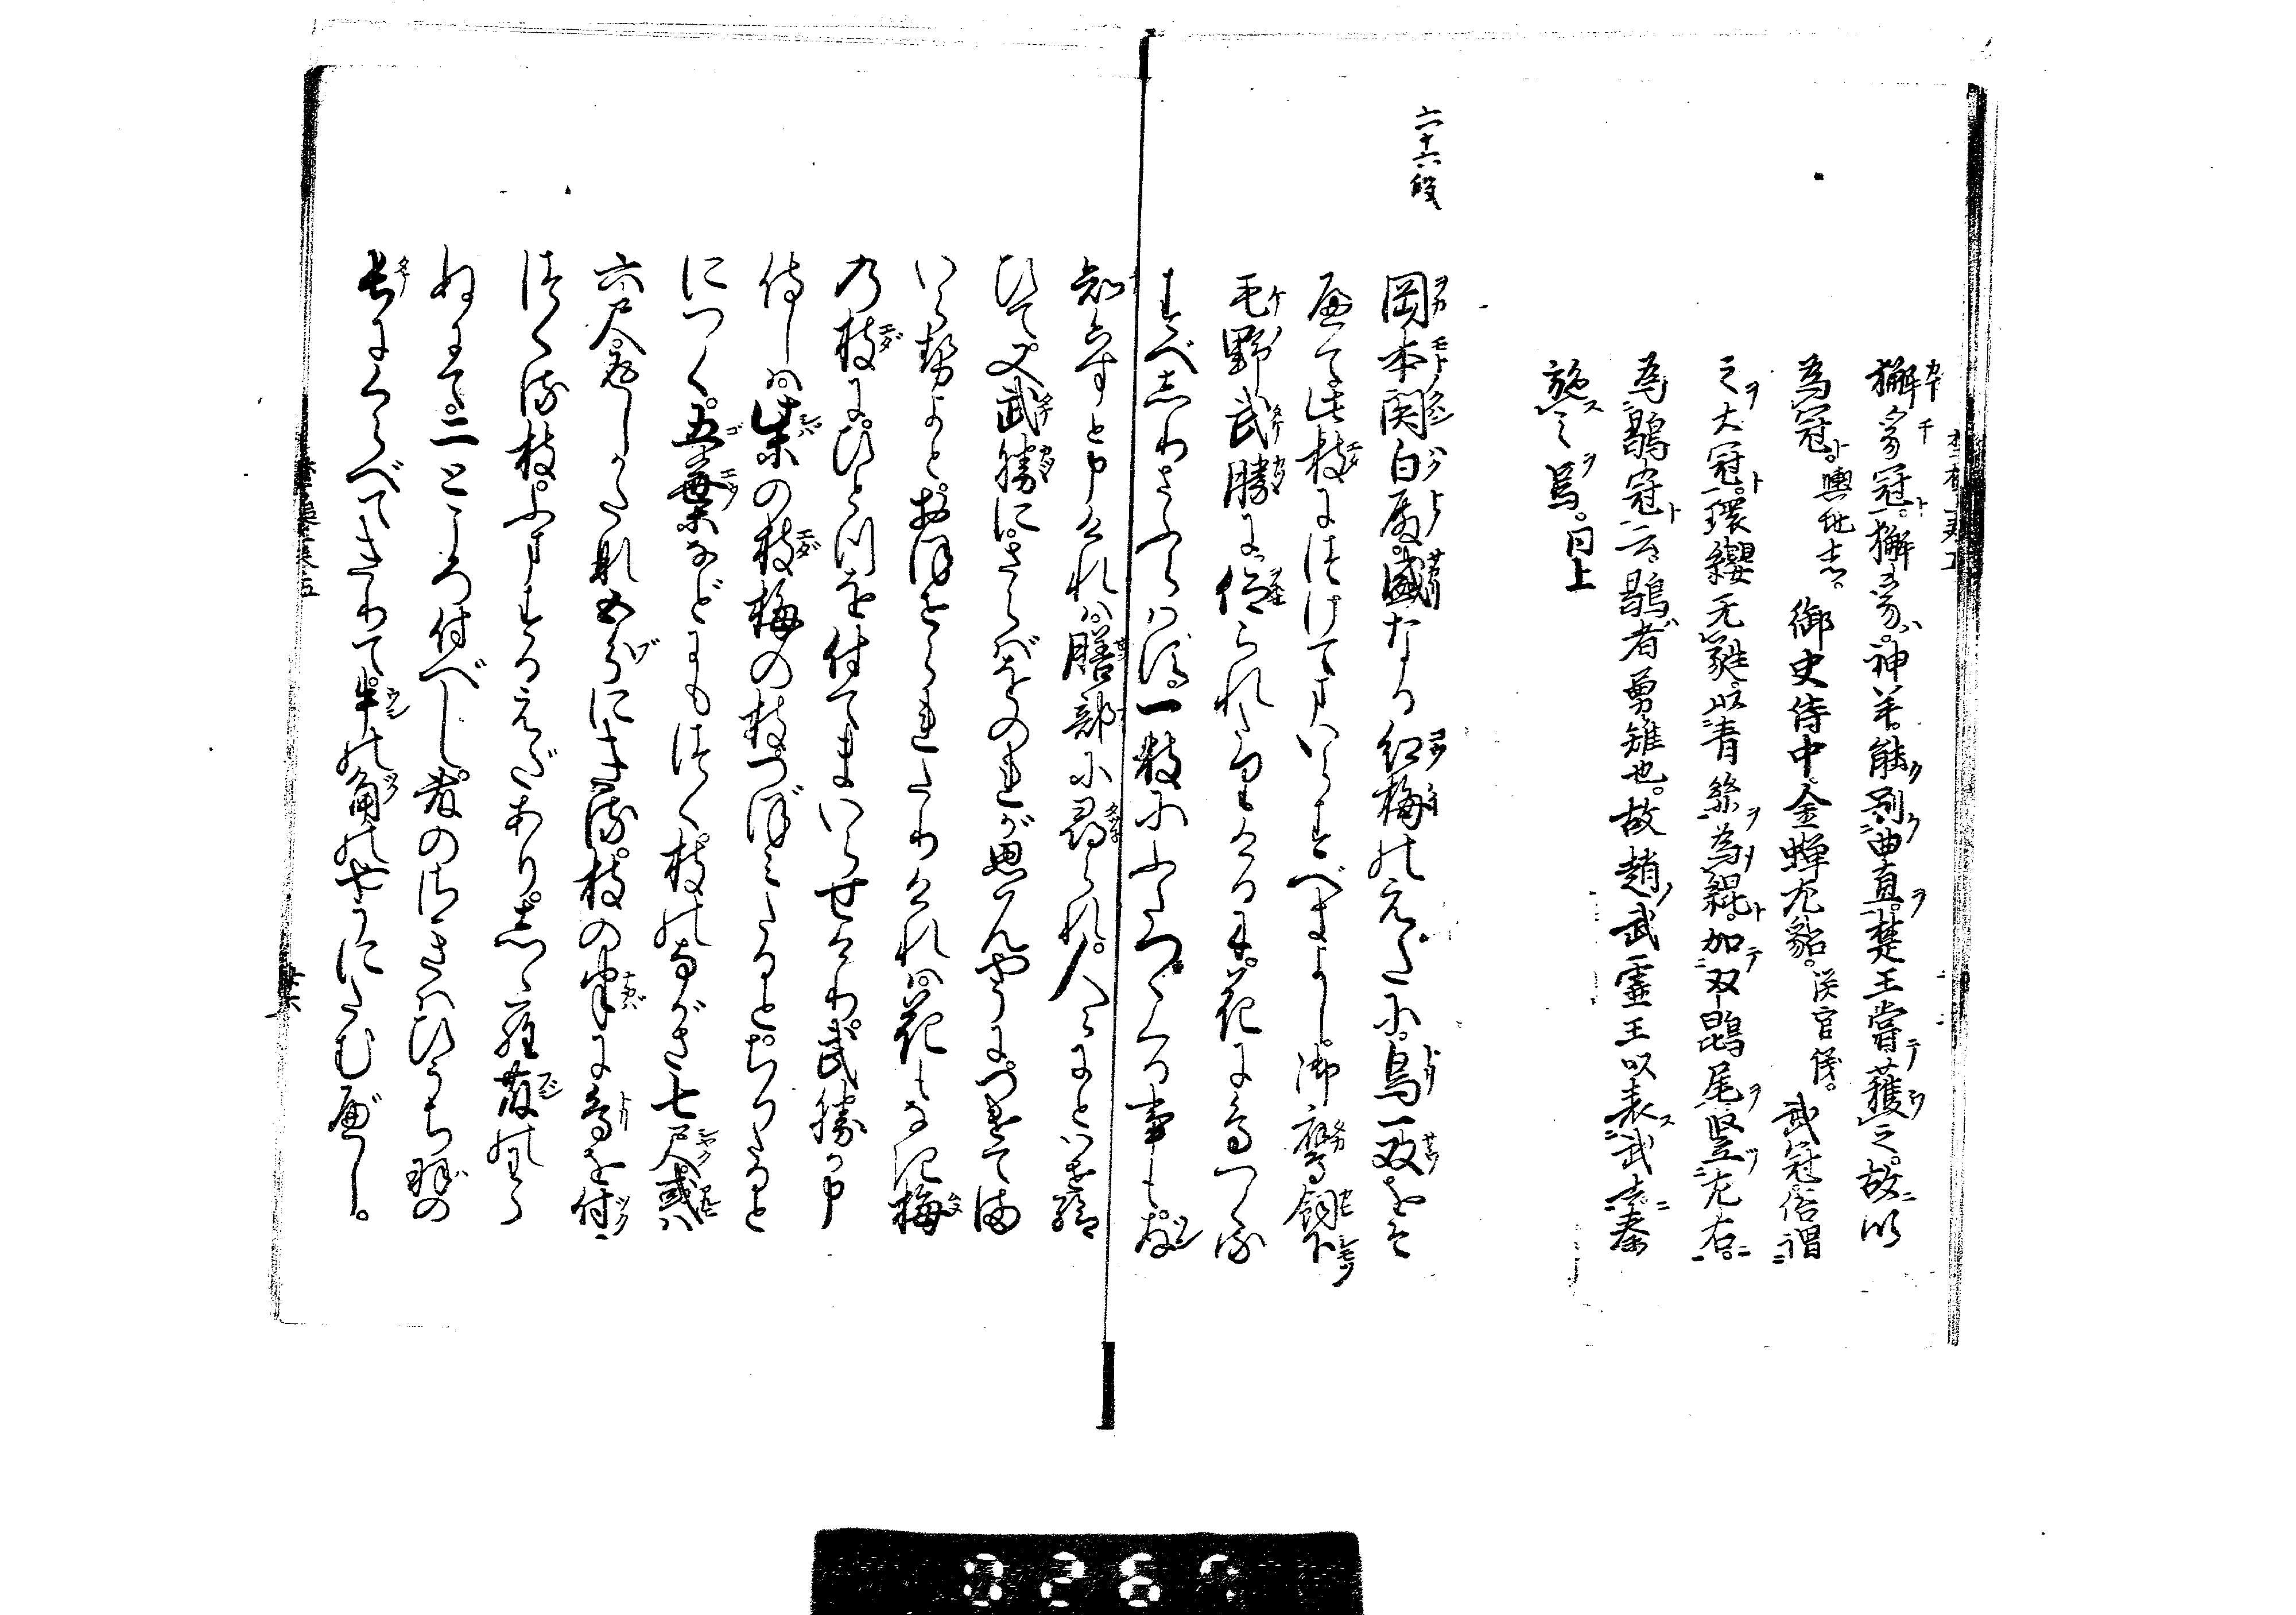 獬豸冠。獬豸ハ。神羊。能ク別ニ曲直ヲ。楚王嘗テ獲之。故ニ以
為冠ト。輿地志。御史侍中。金蝉左貂。漢官儀。武冠。俗謂
之ヲ大冠ト。環纓无蕤。以青絲ヲ為緄ト。加テ双鶡尾ヲ竪ツ左右ニ。
為鶡冠ト云。鶡者勇雉也。故趙ノ武霊王以表ス武士ニ。秦
施ス之ヲ焉。同上
六十六段
岡本関白殿。盛なる紅梅のえだに。鳥一双をそ
へて此枝につけてまいらすべきよし。御鷹飼下
毛野武勝に仰られたりけるに。花に鳥つくる
すべしりさふらはず。一枝にふたつつくる事も。存
知候はずと申ければ。膳部に尋られ。人々にとはせ給
ひて。又武勝に。さらばをのれが思はんやうに。つけてま
いらせよと。おほせられたりければ。花もなき梅
の枝に。ひとつを付てまいらせけり。武勝が申
侍しは。柴の枝梅の枝。つぼみたると。ちりたると
につく。五葉などにもつく。枝のながさ七尺。或は
六尺。返しがたな五分にきる。枝の半に鳥を付。
つくる枝。ふまするえだあり。しゞら藤のわら
ぬにて。二ところ付べし。藤のさきはひうち羽の
長にくらべてきりて。牛の角のやうにたむべし。